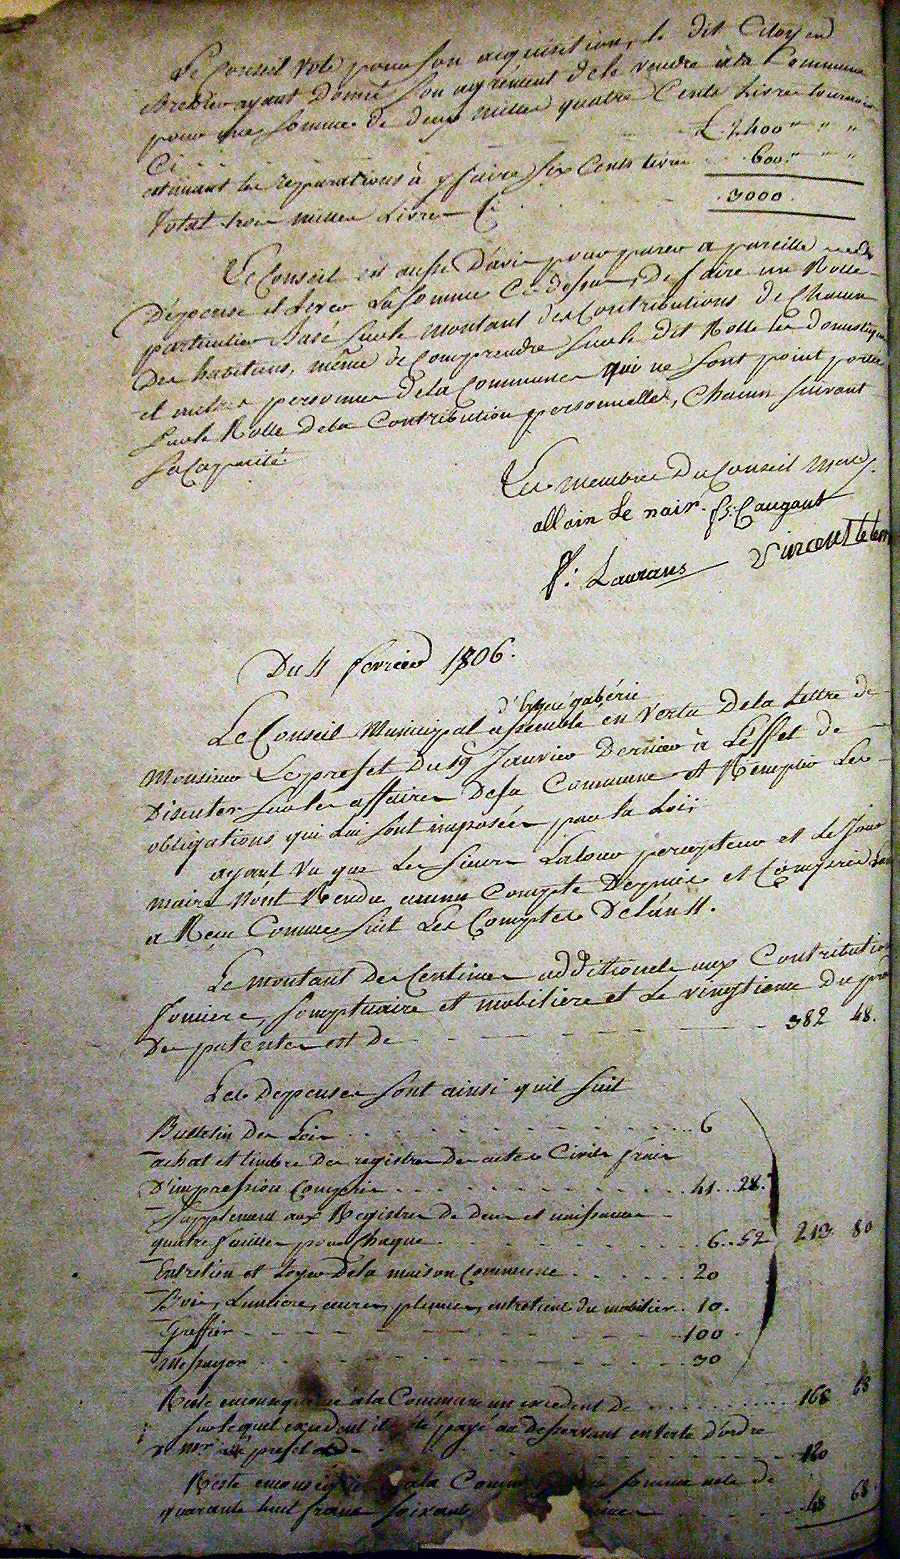 Le Conseil vote pour son acquisition, le dit Citoyen
ayant Donné son agrément de le vendre à la Commune
pour une somme de deux milles quatre Cents Livres tournois
Ci . . . £ 2.400 " " "
estimant les reparations à y faire six Cents livres . . 600 " " "
Total trois milles Livres Ci . . . 3000
Le Conseil est aussi D'avis pour parer a pareille
Dépense et lever La somme Ci dessus, De faire un Rolle
particulier Basé sur le montant des Contributions De Chacun
Des habitans, même de Comprendre sur le dit Rolle les domestiques
et autres personnes de la Commune qui ne sont point portés
sur le Rolle de la Contribution personnelle, Chacun suivant
sa Capacité.
Les membres Du Conseil
allain Le nair. Caugant
Laurans Vincent
Du 4 fevrier 1806.
d'Ergué gabéric
Le Conseil Municipal assemblé en Vertu De la Lettre de
Monsieur Le prefet Du 19 Janvier Dernier à L'effet de
Discuter sur les affaires De sa Commune et Remplir Les
obligations qui Lui sont imposées par la Loi,
ayant Vu que Les sieurs percepteur et Le Jour
maire N'ont Rendu aucun Compte Depuis et Compris
a Réglé Comme suit Les Comptes De L'an 11.
Le montant des Centimes additionels aux Contributions
fonciere, somptuaire et mobiliere et Le vingtieme du
Des patentes est de 382 48.
Les Depenses sont ainsi qu'il suit
Bulletin Des Lois . . . 6
achat et timbre Des registres Des actes Civils frais
D'impression Compris . . . 41 . . 28.
Supplement aux Registres De Deces et naissances
quatre feuilles pour Chaque . . . 6 . . 52 213 80
Entretien et Loyer De la maison Commune . . . 20
Bois, Lumiere, encre, plumes, entretient du mobilier . . 10.
Greffier . . . 100
Messager . . . 30
Reste en conséquence à la Commune un excedent de . . . 168 68
Sur lequel excedent il a été payé au desservant en vertu d'ordre
de Mr. le prefet . . . 120
Reste à la somme nete de
quarante huit francs soixante . . . 48 68